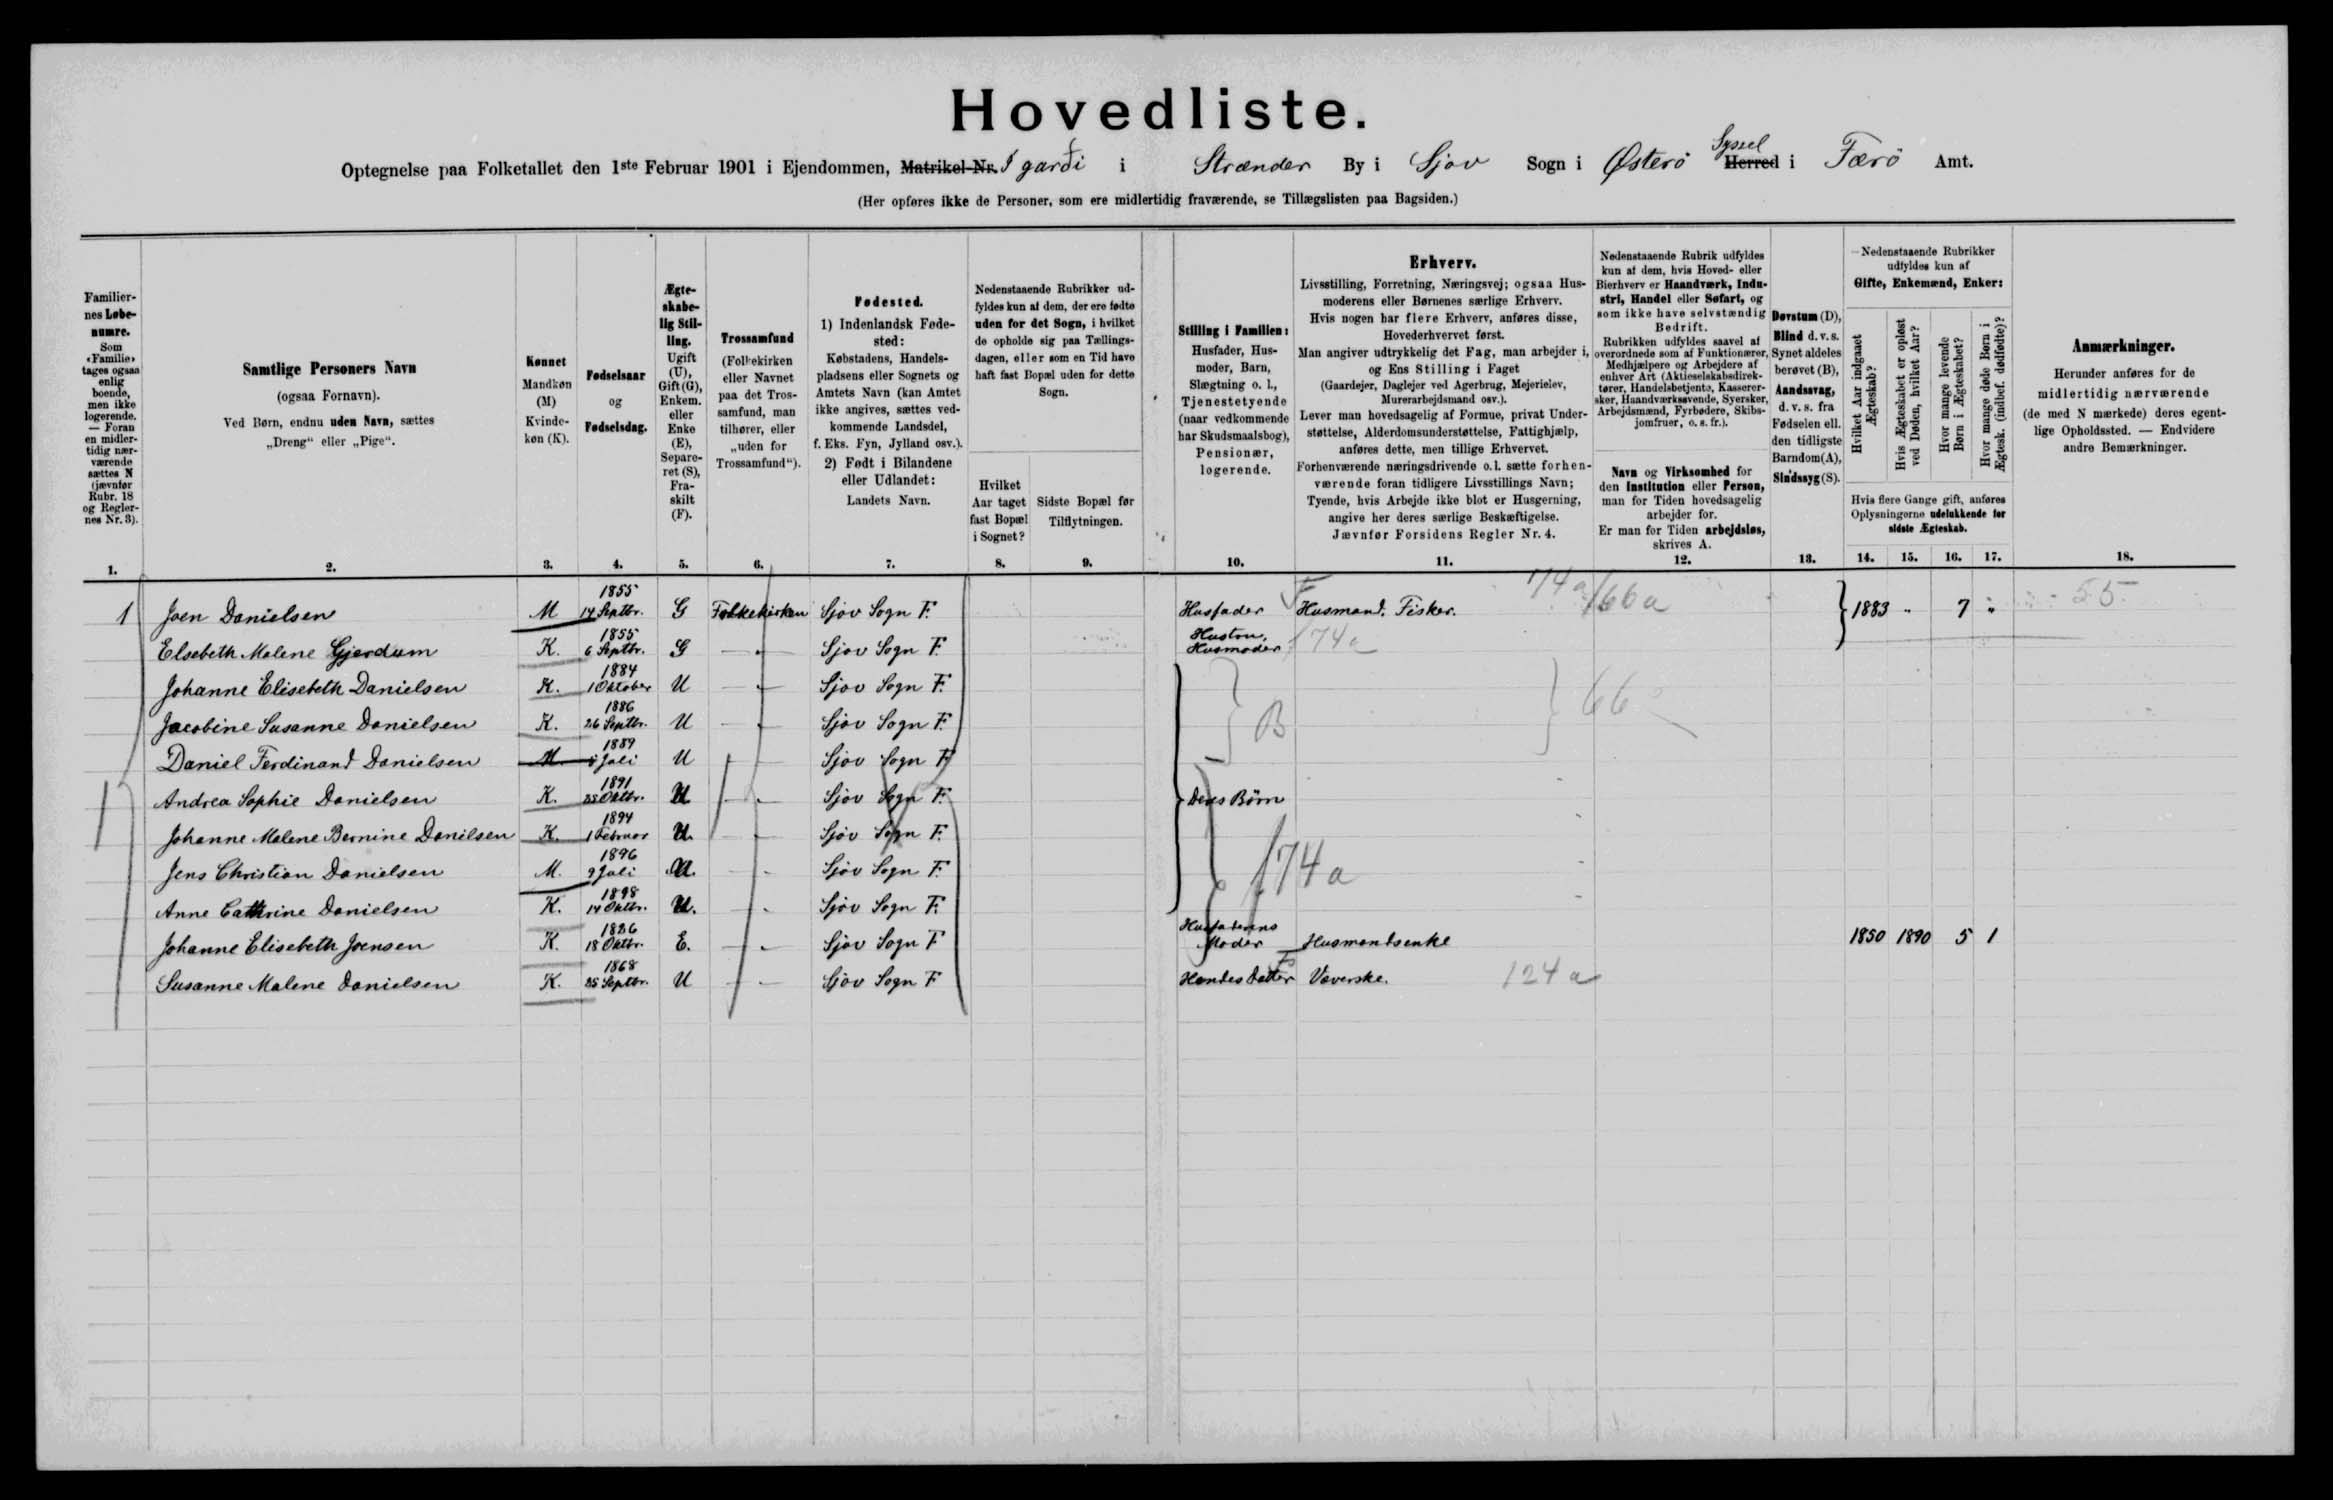 Hovedliste.
Optegnelse paa Folketallet den 1ste Februar 1901 i Ejendommen, Matrikel-Nr. I garði i Strænder By i Sjov Sogn i Østerö Herred Syssel i Færö Amt.
(Her opføres ikke de Personer, som ere midlertidig fraværende, se Tillægslisten paa Bagsiden.)
Familiernes Løbenumre. Som «Familie» tages ogsaa enlig boende, men ikke logerende. — Foran en midlertidig nærværende sættes N (jævnfør Rubr. 18 og Reglernes Nr. 3).
Samtlige Personers Navn
(ogsaa Fornavn).
Ved Børn, endnu uden Navn, sættes
„Dreng“ eller „Pige“.
Kønnet
Mandkøn (M)
Kvindekøn (K).
Fødselsaar
og
Fødselsdag.
Ægteskabelig Stilling.
Ugift (U), Gift (G), Enkem. eller Enke (E), Separeret (S), Fraskilt (F).
Trossamfund
(Folkekirken eller Navnet paa det Trossamfund, man tilhører, eller „uden for Trossamfund“).
Fødested.
1) Indenlandsk Fødested:
Købstadens, Handelspladsens eller Sognets og Amtets Navn (kan Amtet ikke angives, sættes vedkommende Landsdel, f. Eks. Fyn, Jylland osv.).
2) Født i Bilandene eller Udlandet:
Landets Navn.
Nedenstaaende Rubrikker udfyldes kun af dem, der ere fødte uden for det Sogn, i hvilket de opholde sig paa Tællingsdagen, eller som en Tid have haft fast Bopæl uden for dette Sogn.
Hvilket Aar taget fast Bopæl i Sognet?
Sidste Bopæl før Tilflytningen.
Stilling i Familien:
Husfader, Husmoder, Barn, Slægtning o. l., Tjenestetyende (naar vedkommende har Skudsmaalsbog), Pensionær, logerende.
Erhverv.
Livsstilling, Forretning, Næringsvej; ogsaa Husmoderens eller Børnenes særlige Erhverv.
Hvis nogen har flere Erhverv, anføres disse, Hovederhvervet først.
Man angiver udtrykkelig det Fag, man arbejder i, og Ens Stilling i Faget
(Gaardejer, Daglejer ved Agerbrug, Mejerielev, Murerarbejdsmand osv.).
Lever man hovedsagelig af Formue, privat Understøttelse, Alderdomsunderstøttelse, Fattighjælp, anføres dette, men tillige Erhvervet.
Forhenværende næringsdrivende o. l. sætte forhenværende foran tidligere Livsstillings Navn;
Tyende, hvis Arbejde ikke blot er Husgerning, angive her deres særlige Beskæftigelse.
Jævnfør Forsidens Regler Nr. 4.
Nedenstaaende Rubrik udfyldes kun af dem, hvis Hoved- eller Bierhverv er Haandværk, Industri, Handel eller Søfart, og som ikke have selvstændig Bedrift.
Rubrikken udfyldes saavel af overordnede som af Funktionærer, Medhjælpere og Arbejdere af enhver Art (Aktieselskabsdirektører, Handelsbetjente, Kasserersker, Haandværkssvende, Syersker, Arbejdsmænd, Fyrbødere, Skibsjomfruer, o. s. fr.).
Navn og Virksomhed for den Institution eller Person, man for Tiden hovedsagelig arbejder for.
Er man for Tiden arbejdsløs, skrives A.
Døvstum (D), Blind d. v. s. Synet aldeles berøvet (B), Aandssvag, d. v. s. fra Fødselen ell. den tidligste Barndom (A), Sindssyg (S).
Nedenstaaende Rubrikker udfyldes kun af
Gifte, Enkemænd, Enker:
Hvilket Aar indgaaet Ægteskab?
Hvis Ægteskabet er opløst ved Døden, hvilket Aar?
Hvor mange levende Børn i Ægteskabet?
Hvor mange døde Børn i Ægtesk. (indbef. dødfødte)?
Hvis flere Gange gift, anføres Oplysningerne udelukkende for sidste Ægteskab.
Anmærkninger.
Herunder anføres for de midlertidig nærværende (de med N mærkede) deres egentlige Opholdssted. — Endvidere andre Bemærkninger.
1. 2. 3. 4. 5. 6. 7. 8. 9. 10. 11. 12. 13. 14. 15. 16. 17. 18.
1 Joen Danielsen M 1855 14 Septbr. G Folkekirken Sjov Sogn F. Husfader F Husmand. Fisker. 174a/66a 1883 " 7 " 55
Elsebeth Malene Gjerdum K. 1855 6 Septbr. G — " Sjov Sogn F. Hustru, Husmoder 174a
Johanne Elisebeth Danielsen K. 1884 1 Oktober U — " Sjov Sogn F.
Jacobine Susanne Danielsen K. 1886 26 Septbr. U — " Sjov Sogn F. B 66
Daniel Ferdinand Danielsen M. 1889 Juli U — Sjov Sogn F
Andrea Sophie Danielsen K. 1891 25 Oktbr. U — " Sjov Sogn F. Deres Börn
Johanne Malene Bernine Danielsen K. 1894 1 Februar U. — Sjov Sogn F.
Jens Christian Danielsen M. 1896 9 Juli U. — " Sjov Sogn F. 174a
Anne Cathrine Danielsen K. 1898 14 Oktbr. U. — " Sjov Sogn F.
Johanne Elisebeth Joensen K. 1826 18 Oktbr. E. — " Sjov Sogn F Husfaderens Moder Husmandsenke 1850 1890 5 1
Susanne Malene Danielsen K. 1868 25 Septbr. U — " Sjov Sogn F Hendes Datter Fo Væverske. 124a